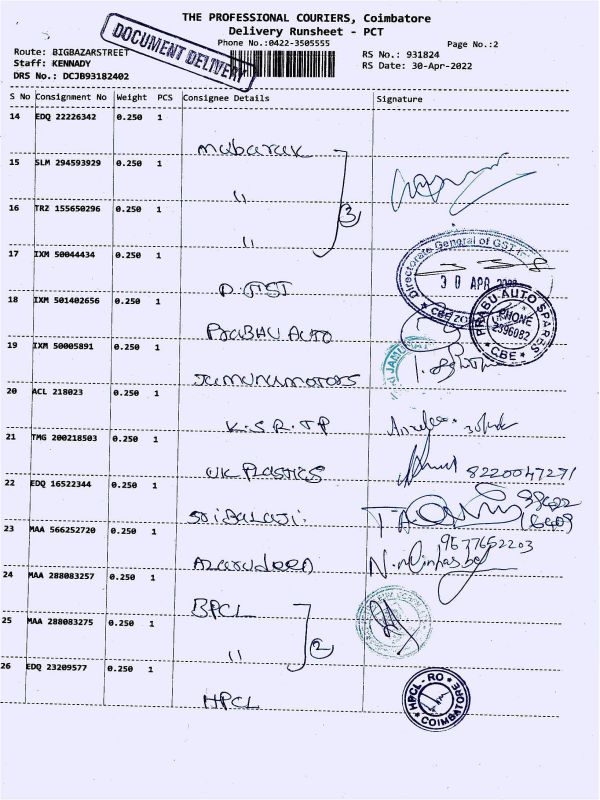 THE PROFESSIONAL COURIERS, Coimbatore
Delivery Runsheet - PCT
DOCUMENT DELIVERY
Phone No.:0422-3505555
Page No.:2
Route: BIGBAZARSTREET
RS No.: 931824
Staff: KENNADY
RS Date: 30-Apr-2022
DRS No.: DCJB93182402
S No Consignment No Weight PCS Consignee Details Signature
14 EDQ 22226342 0.250 1
mubarak
15 SLM 294593929 0.250 1
"
3
16 TRZ 155650296 0.250 1
"
17 IXM 50044434 0.250 1
Directorate General of GST
30 APR
CBE
D. GST
18 IXM 501402656 0.250 1
PRABU AUTO SPARES
PHONE
2396082
CBE
PRABHU AUTO
19 IXM 50005891 0.250 1
JAMU
Jamunamotors
20 ACL 218023 0.250 1
K.S.R.TP
21 TMG 200218503 0.250 1
UK PLASTICS
8220047271
22 EDQ 16522344 0.250 1
Sri Balaji
23 MAA 566252720 0.250 1
9577652203
Azarudeen
24 MAA 288083257 0.250 1
BPCL
25 MAA 288083275 0.250 1
"
2
26 EDQ 23209577 0.250 1
HPCL - RO
COIMBATORE
HPCL